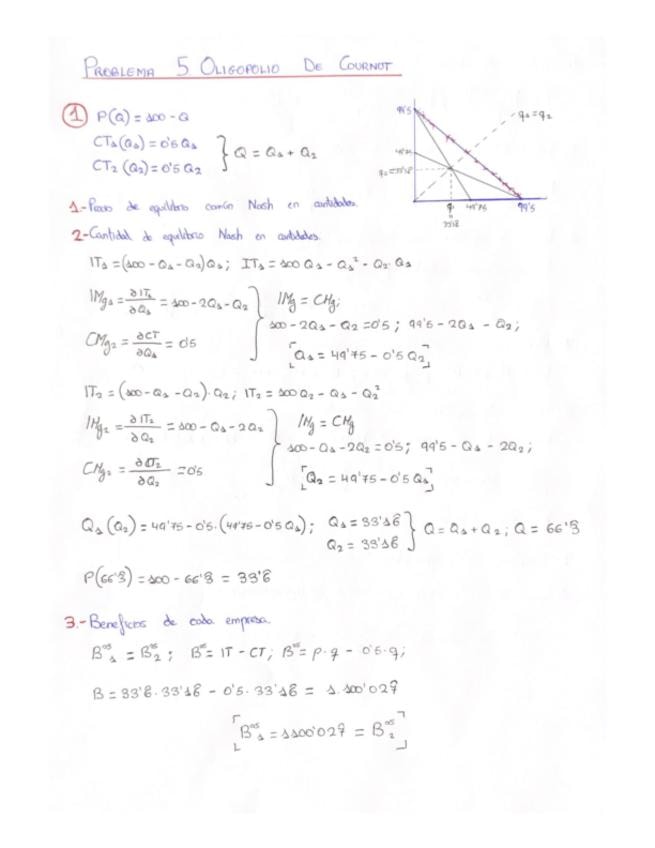 PROBLEMA 5 OLIGOPOLIO DE COURNOT
1 P(Q) = 100 - Q
CT₁(Q₁) = 0'5Q₁
CT₂(Q₂) = 0'5Q₂ } Q = Q₁ + Q₂
99'5
q₁ = q₂
49'75
q₂ = 33'16̂
49'75
99'5
33'16̂
1.- Precio de equilibrio común Nash en cantidades.
2- Cantidad de equilibrio Nash en cantidades.
IT₁ = (100 - Q₁ - Q₂)Q₁; IT₁ = 100Q₁ - Q₁² - Q₂·Q₁
IMg₁ = ∂IT₁/∂Q₁ = 100 - 2Q₁ - Q₂ } IMg = CMg;
100 - 2Q₁ - Q₂ = 0'5; 99'5 - 2Q₁ - Q₂;
CMg₂ = ∂CT/∂Q₁ = 0'5
[Q₁ = 49'75 - 0'5Q₂]
IT₂ = (100 - Q₁ - Q₂)·Q₂; IT₂ = 100Q₂ - Q₁ - Q₂²
IMg₂ = ∂IT₂/∂Q₂ = 100 - Q₁ - 2Q₂ } IMg = CMg
100 - Q₁ - 2Q₂ = 0'5; 99'5 - Q₁ - 2Q₂;
CMg₂ = ∂CT₂/∂Q₂ = 0'5
[Q₂ = 49'75 - 0'5Q₁]
Q₁(Q₂) = 49'75 - 0'5·(49'75 - 0'5Q₁); Q₁ = 33'16̂
Q₂ = 33'16̂ } Q = Q₁ + Q₂; Q = 66'3̂
P(66'3̂) = 100 - 66'3̂ = 33'6̂
3.- Beneficios de cada empresa.
Bᵒˢ₁ = Bᵒˢ₂; Bᵒˢ = IT - CT; Bᵒˢ = p·q - 0'5·q;
B = 33'6̂·33'16̂ - 0'5·33'16̂ = 1.100'027̂
[Bᵒˢ₁ = 1100'027̂ = Bᵒˢ₂]